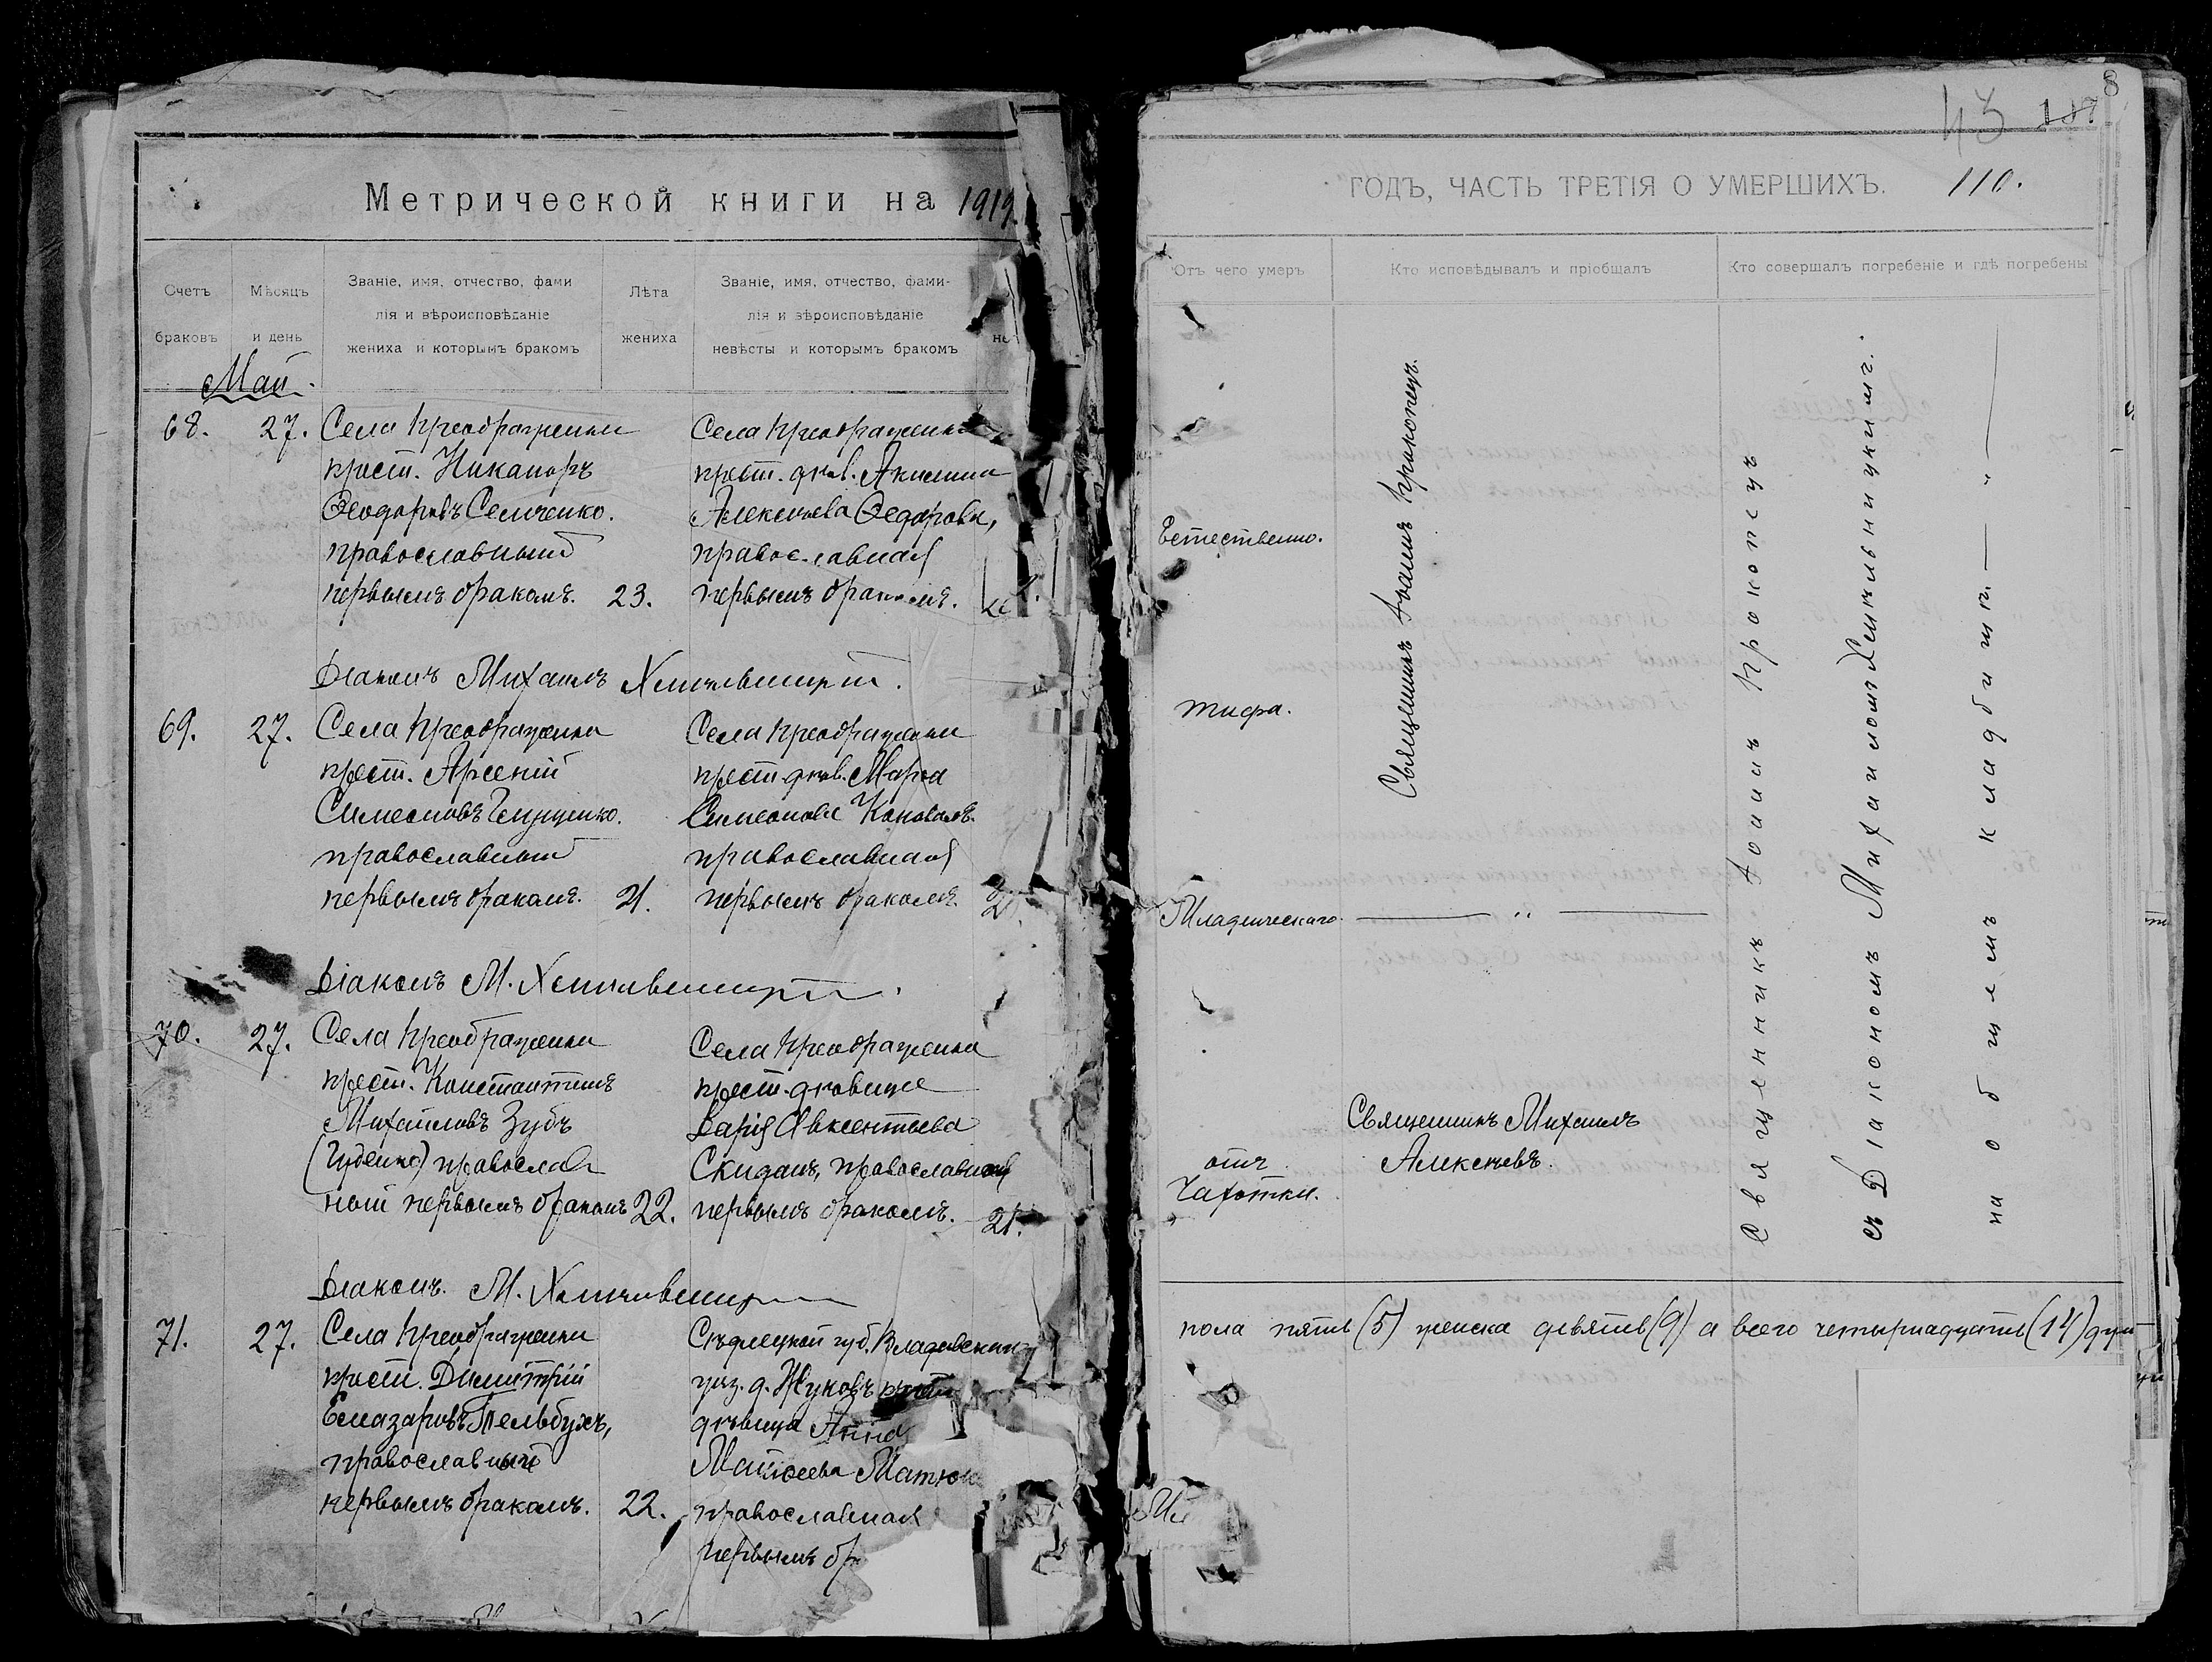 Метрической книги на 1919
Счетъ браковъ
Мѣсяцъ и день
Званіе, имя, отчество, фами
лія и вѣроисповѣданіе
жениха и которымъ бракомъ
Лѣта жениха
Званіе, имя, отчество, фами-
лія и вѣроисповѣданіе
невѣсты и которымъ бракомъ
Май.
68. 27. Села Преображенки
крест. Никаноръ
Ѳеодоровъ Семченко.
православный
первымъ бракомъ. 23.
Села Преображенки
крест. дѣв. Акилина
Алексѣева Ѳедорова,
православная
первымъ бракомъ.
Діаконъ Михаилъ Хмѣльницкій.
69. 27. Села Преображенки
крест. Арсеній
Симеоновъ
православный
первымъ бракомъ. 21.
Села Преображенки
крест. дѣв. Марѳа
Симеонова Коновалъ.
православная
первымъ бракомъ. 21.
Діаконъ М. Хмѣльницкій.
70. 27. Села Преображенки
крест. Константинъ
Михаиловъ Зубъ
православ
ный первымъ бракомъ 22.
Села Преображенки
крест. дѣвица
Дарія Авксентьева
Скиданъ, православная
первымъ бракомъ. 21.
Діаконъ. М. Хмѣльницкій
71. 27. Села Преображенки
крест. Димитрій
Елеазаровъ Тельбухъ,
православный
первымъ бракомъ. 22.
Сѣдлецкой губ. Владавскаго
уѣз. д. Жуковъ крест
дѣвица Анна
Матѳеева Матюк
православная
первымъ бр
8
43 107
ГОДЪ, ЧАСТЬ ТРЕТІЯ О УМЕРШИХЪ. 110.
Отъ чего умеръ
Кто исповѣдывалъ и пріобщалъ
Кто совершалъ погребеніе и гдѣ погребены
Естественно.
тифа.
Младенческаго. — " —
отъ
чахотки.
Священникъ Іоаннъ Прокопецъ.
Священникъ Михаилъ
Алексѣевъ.
Священникъ Іоаннъ Прокопецъ
съ Діакономъ Михаиломъ Хмѣльницкимъ.
на общемъ кладбищѣ. — " —
пола пять (5) женска девять (9) а всего четырнадцать (14) душ